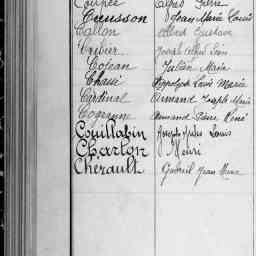 Alfred Pierre
Cresson Jean Marie Louis
Collon Albert Gustave
Joseph
Cojean Julien Marie
Chassé Hippolyte Louis Marie
Cardinal Armand Joseph Marie
Armand Pierre René
Couillabin Joseph Jules Louis
Charton Henri
Cherault Gabriel Jean